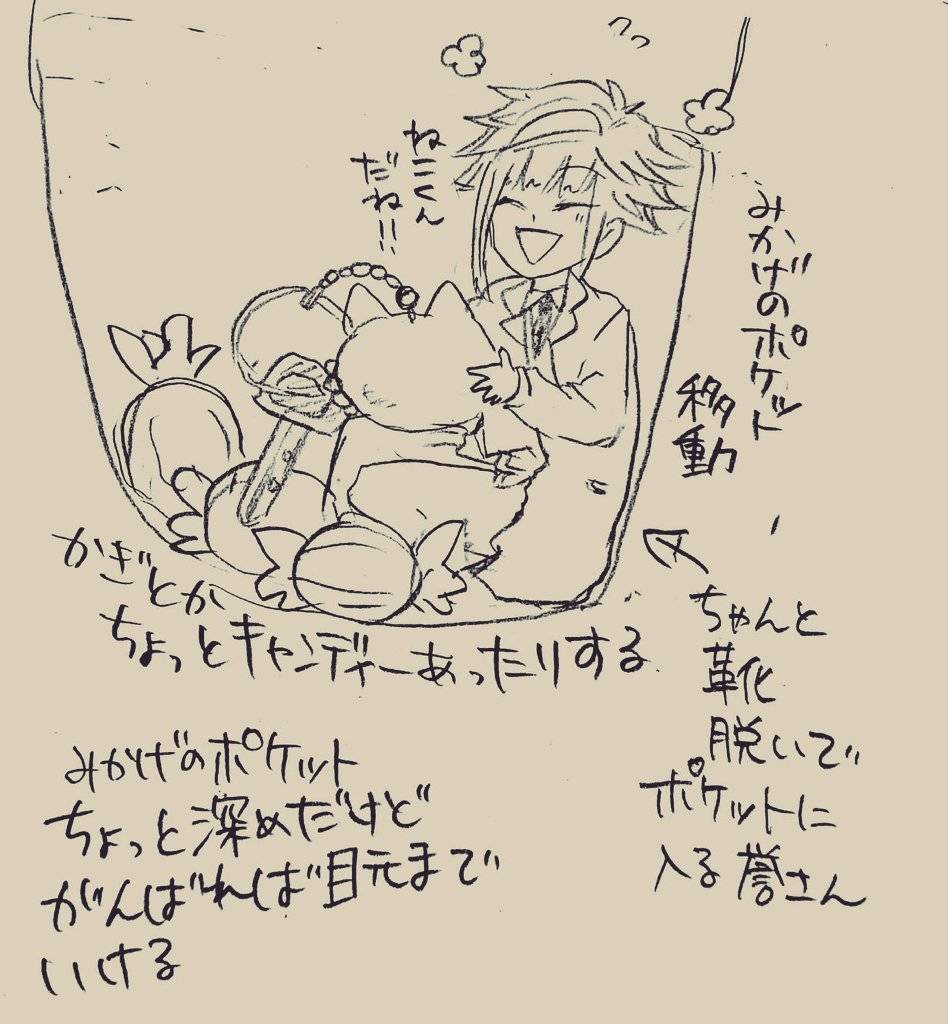 ねこくん
だね!!
みかげのポケット
移動
かぎとか
ちょっとキャンディーあったりする
ちゃんと
靴
脱いで
ポケットに
入る誉さん
みかげのポケット
ちょっと深めだけど
がんばれば目元まで
いける